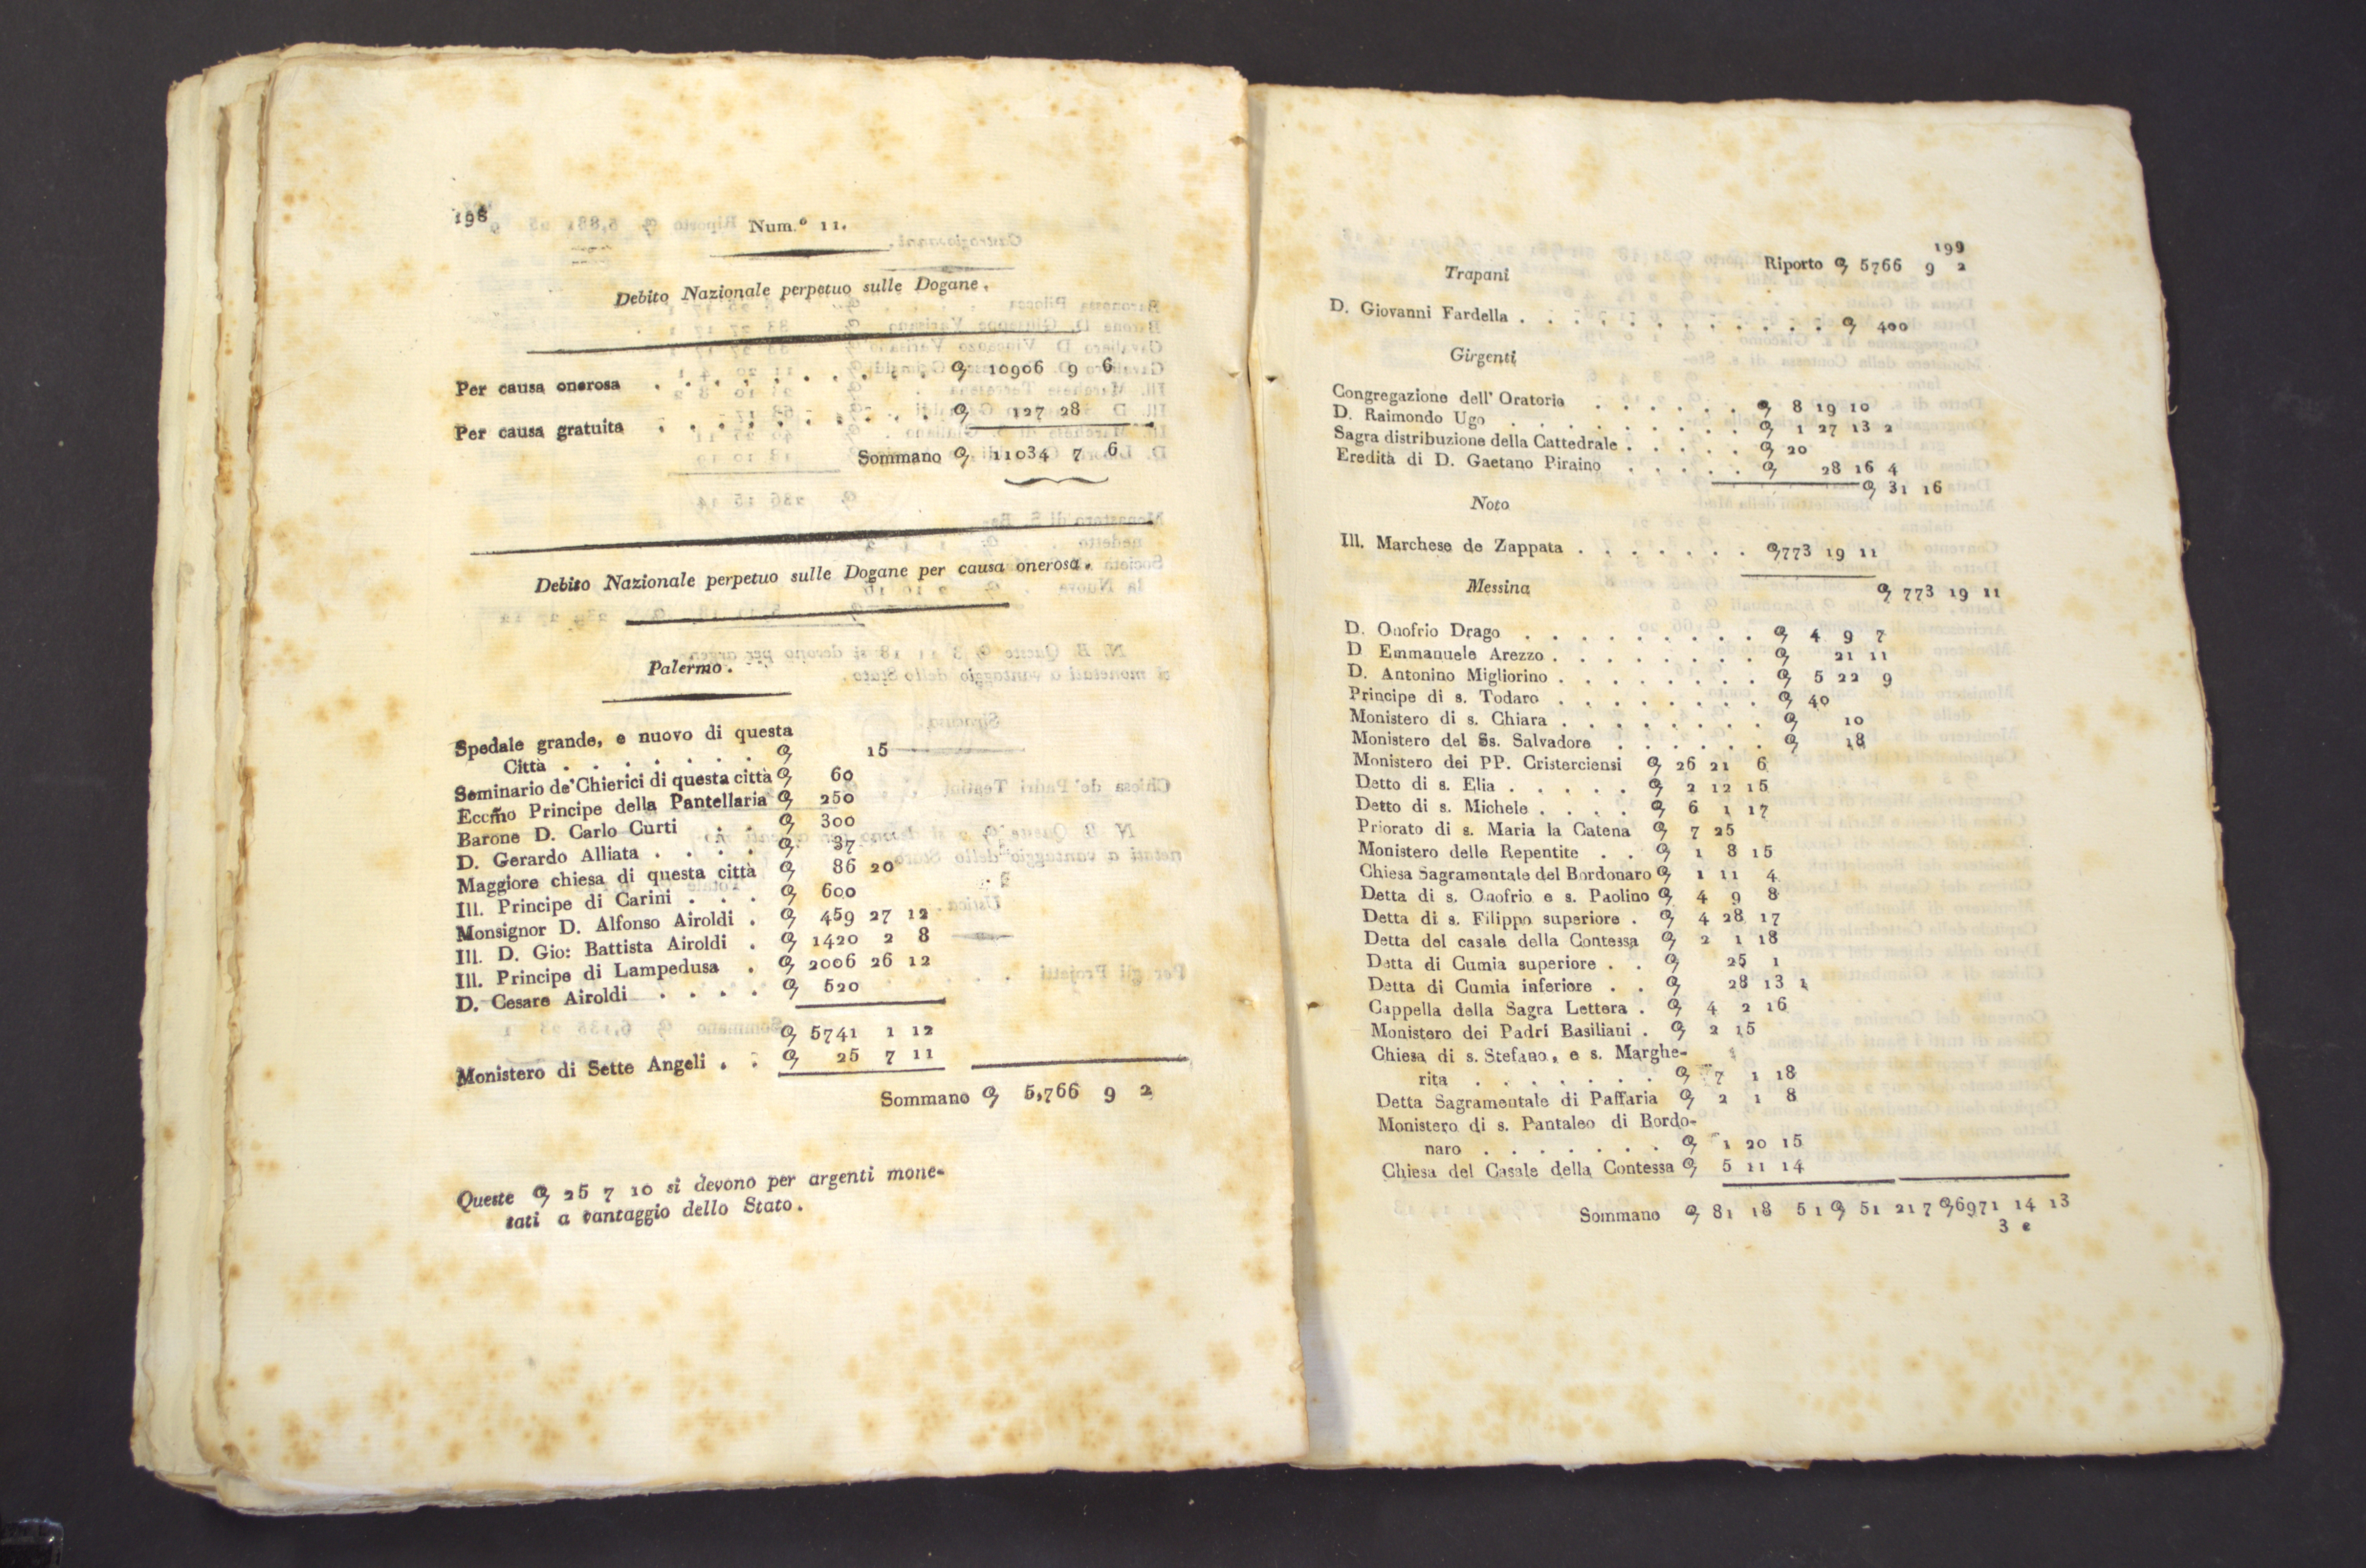 198
Num.° 11.
Debito Nazionale perpetuo sulle Dogane.
Per causa onerosa . . . . . . . . . . . 10906 9 6
Per causa gratuita . . . . . . . . . . . 127 28
Sommano 11034 7 6
Debito Nazionale perpetuo sulle Dogane per causa onerosa.
Palermo.
Spedale grande, e nuovo di questa
Città . . . . . . . 15
Seminario de' Chierici di questa città 60
Eccm̃o Principe della Pantellaria 250
Barone D. Carlo Curti . . 300
D. Gerardo Alliata . . . . 37
Maggiore chiesa di questa città 86 20
Ill. Principe di Carini . . . 600
Monsignor D. Alfonso Airoldi . 459 27 12
Ill. D. Gio: Battista Airoldi . 1420 2 8
Ill. Principe di Lampedusa . 2006 26 12
D. Cesare Airoldi . . . . 520
5741 1 12
Monistero di Sette Angeli . . 25 7 11
Sommano 5,766 9 2
Queste 25 7 10 si devono per argenti mone-
tati a vantaggio dello Stato.
199
Riporto 5766 9 2
Trapani
D. Giovanni Fardella . . . . . . . . . . . . 400
Girgenti
Congregazione dell' Oratorio . . . . . . 8 19 10
D. Raimondo Ugo . . . . . . . . . 1 27 13 2
Sagra distribuzione della Cattedrale . . . . . 20
Eredità di D. Gaetano Piraino . . . . . 28 16 4
31 16
Noto
Ill. Marchese de Zappata . . . . . . . 773 19 11
Messina
773 19 11
D. Onofrio Drago . . . . . . . . . 4 9 7
D Emmanuele Arezzo . . . . . . . . 21 11
D. Antonino Migliorino . . . . . . . . 5 22 9
Principe di s. Todaro . . . . . . . . 40
Monistero di s. Chiara . . . . . . . . 10
Monistero del Ss. Salvadore . . . . . . 18
Monistero dei PP. Cristerciensi 26 21 6
Detto di s. Elia . . . . . 2 12 15
Detto di s. Michele . . . . 6 1 17
Priorato di s. Maria la Catena 7 25
Monistero delle Repentite . . 1 8 15
Chiesa Sagramentale del Bordonaro 1 11 4
Detta di s. Onofrio e s. Paolino 4 9 8
Detta di s. Filippo superiore . 4 28 17
Detta del casale della Contessa 2 1 18
Detta di Cumia superiore . . 25 1
Detta di Cumia inferiore . . 28 13 1
Cappella della Sagra Lettera . 4 2 16
Monistero dei Padri Basiliani . 2 15
Chiesa di s. Stefano, e s. Marghe-
rita . . . . . . . 7 1 18
Detta Sagramentale di Paffaria 2 1 8
Monistero di s. Pantaleo di Bordo-
naro . . . . . . . 1 20 15
Chiesa del Casale della Contessa 5 11 14
Sommano 81 18 5 1 51 217 6971 14 13
3 e